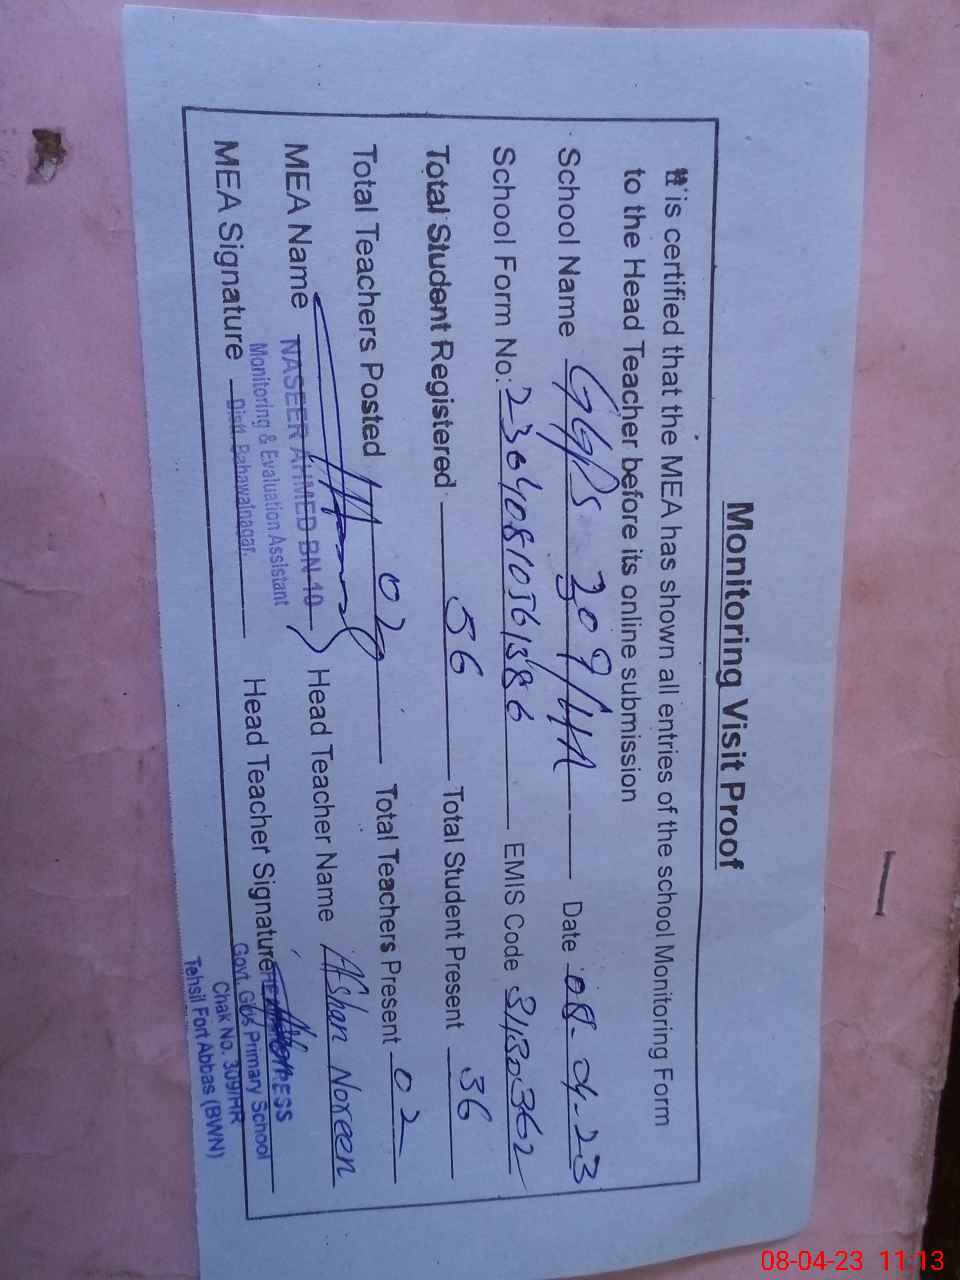 Monitoring Visit Proof
It is certified that the MEA has shown all entries of the school Monitoring Form
to the Head Teacher before its online submission
School Name GGPS 309/HR Date 08-04-23
School Form No: 23040810561586 EMIS Code 31130362
Total Student Registered 56 Total Student Present 36
Total Teachers Posted 02 Total Teachers Present 02
MEA Name NASEER AHMED BN 10 Head Teacher Name Afshan Noreen
Monitoring & Evaluation Assistant
Distt. Bahawalnagar.
MEA Signature Head Teacher Signature
Govt. Girls Primary School
Chak No. 309/HR
Tehsil Fort Abbas (BWN)
08-04-23 11:13